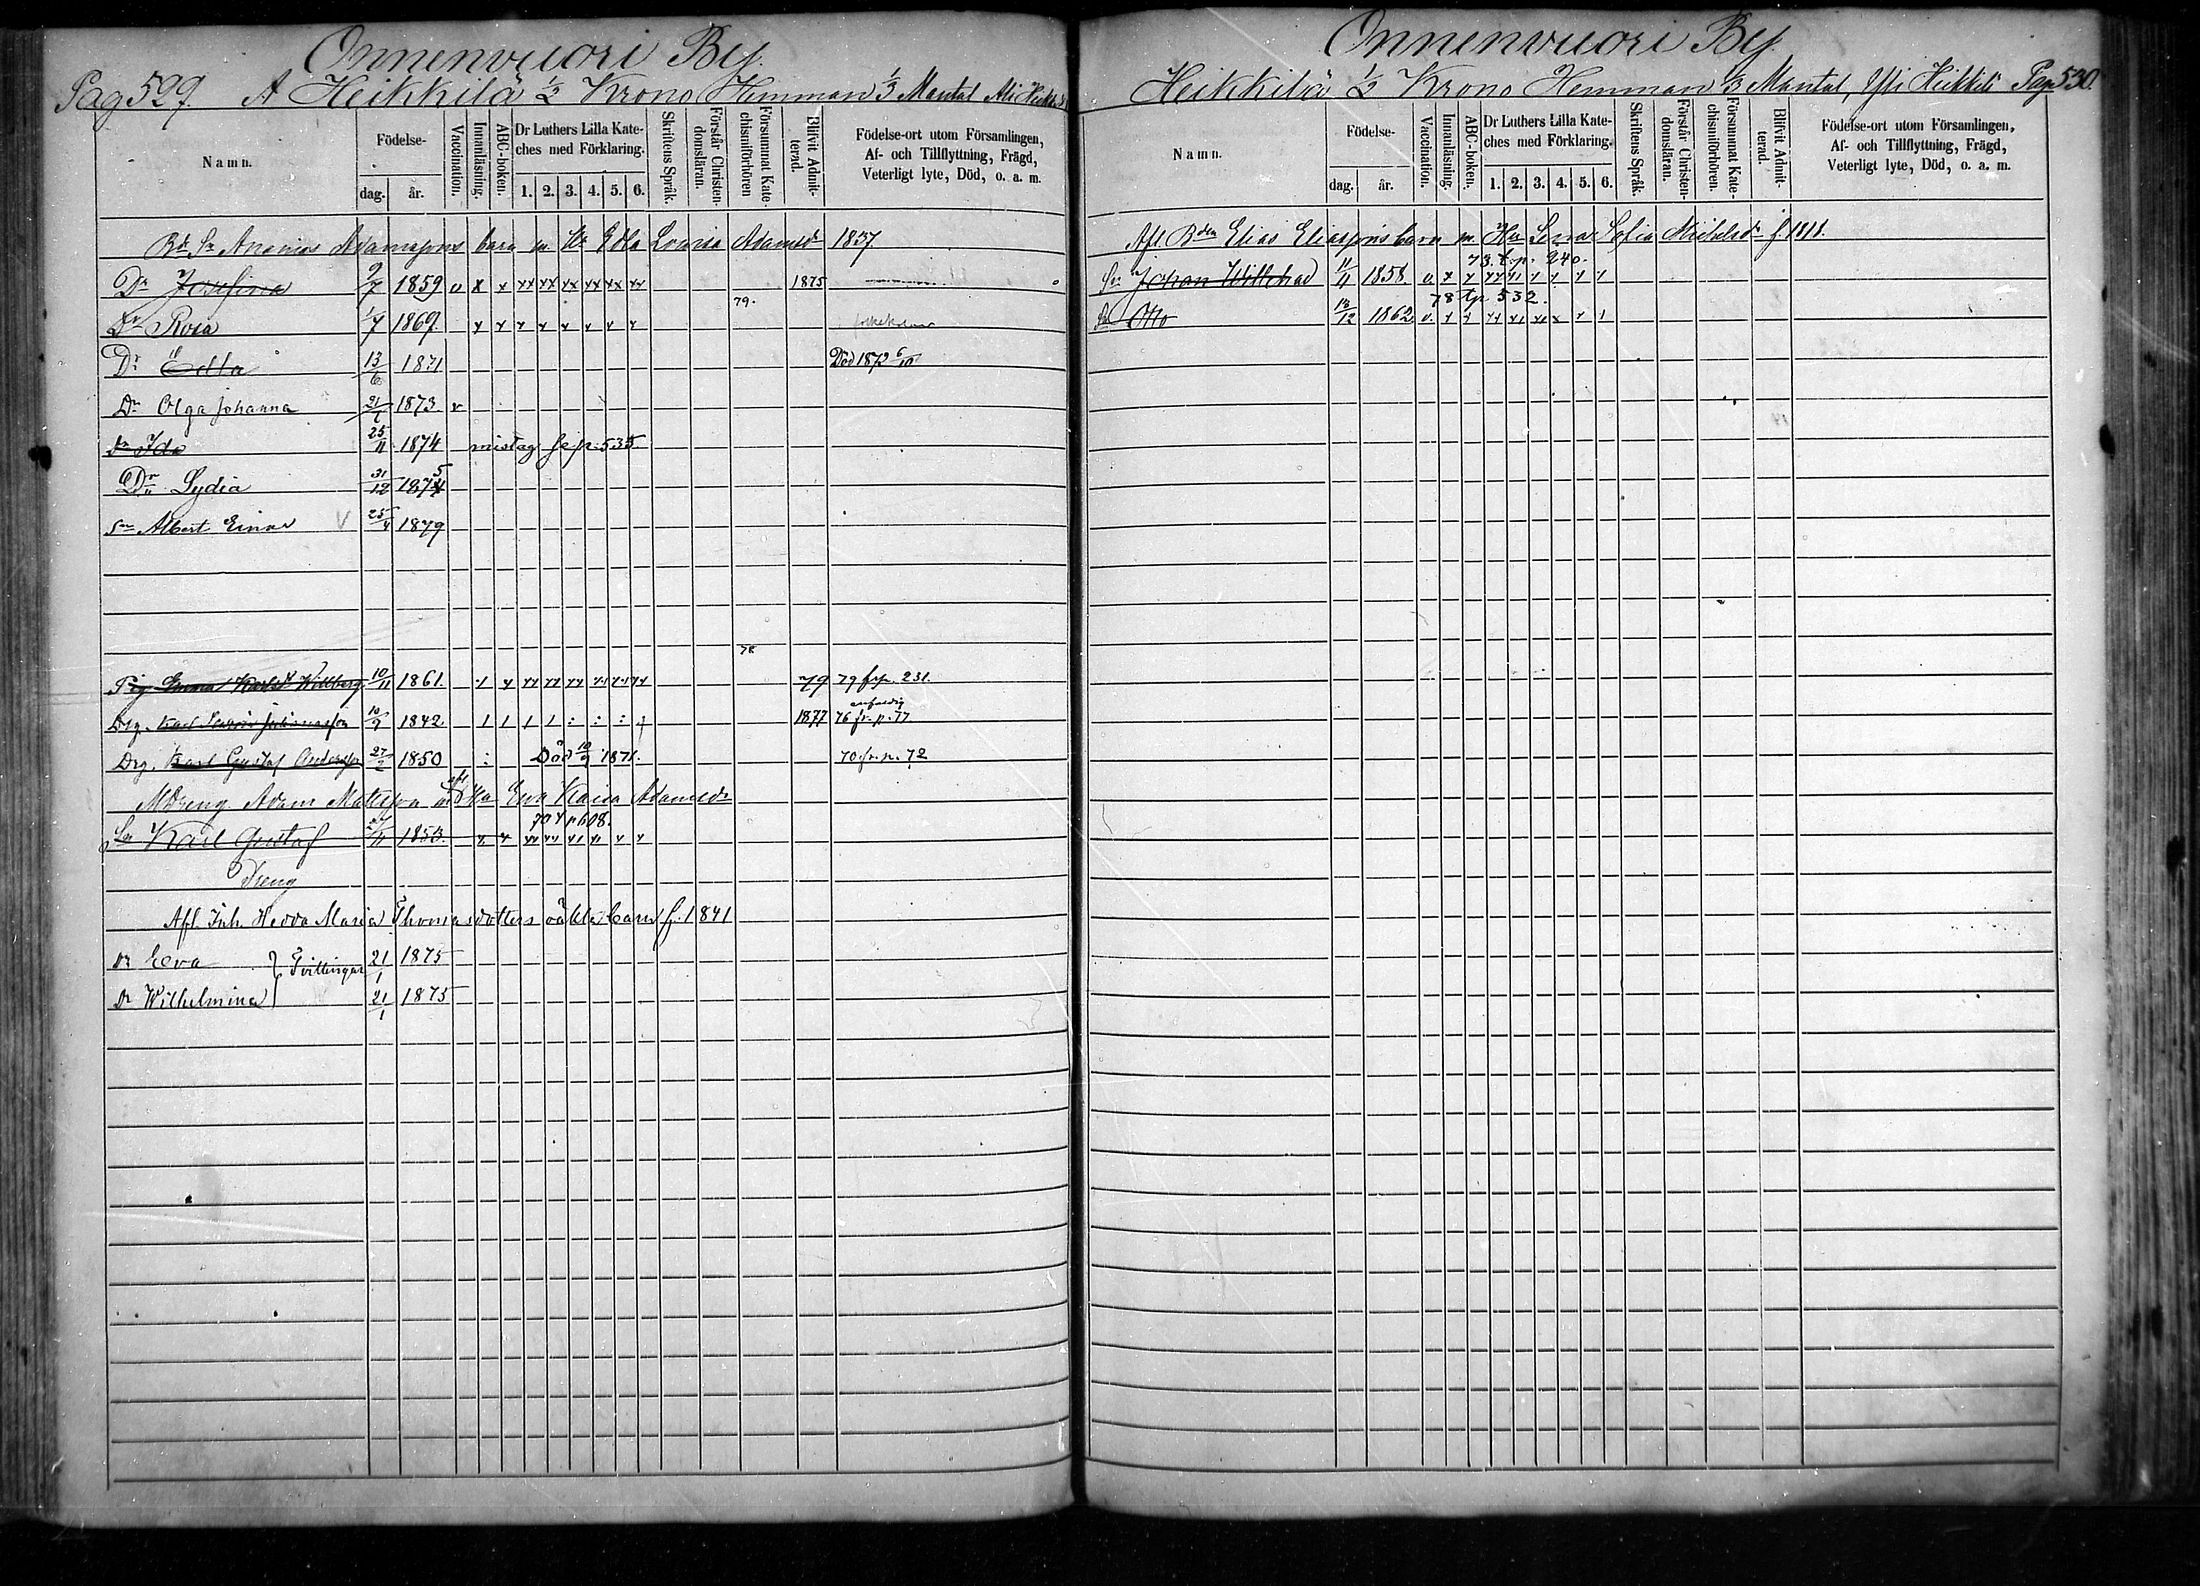 Onnenvuori By.
Pag 529. A Heikkilä 1/2 Krono Hemman 1/3 Mantal Ali Heikkilä
Namn. Födelse- dag. år. Vaccination. Innanläsning. ABC-boken. Dr Luthers Lilla Kateches med Förklaring. 1. 2. 3. 4. 5. 6. Skriftens Språk. Förstår Christendomsläran. Försummat Katechismiförhören Blifvit Admitterad. Födelse-ort utom Församlingen, Af- och Tillflyttning, Frägd, Veterligt lyte, Död, o. a. m.
Adamssons barn m. Edla Lovisa Adamsdr 1837.
Dr Josefina 9/7 1859 v x x xx xx xx xx xx xx 1875
79.
Dr Rosa 1/7 1869.
Dr Edla 13/6 1871 Död 1872 6/10
Dr Olga Johanna 21/1 1873. v
dr Ida 25/11 1874 mistag se p. 535
Dr Lydia 31/12 1875
Sn Albert Einar V 25/4 1879
78
Pig. Emma Karlsd Willberg 10/11 1861. 79 79 fr p. 231.
Drg. Karl 10/9 1842. 1 1 1 1 : : : 1877 76 fr. p. 77
Drg. Karl Gustaf Andersson 27/2 1850 : Död 10/9 1871. 70 fr. p. 72
MDreng Adam Matsson m afl. Hu Eva Kaisa Adamsdr
70 t p 608.
Sn Karl Gustaf 1853.
Dreng
Afl. Inh. Hedda Maria Thomasdotters oäkta barn f. 1841
dr Eva } Tvillingar 21/1 1875
dr Wilhelmina 21/1 1875
Onnenvuori By
Heikkilä 1/2 Krono Hemman 1/3 Mantal, Yli Heikkilä Pag 530.
Namn. Födelse- dag. år. Vaccination. Innanläsning. ABC-boken. Dr Luthers Lilla Kateches med Förklaring. 1. 2. 3. 4. 5. 6. Skriftens Språk. Förstår Christendomsläran. Försummat Katechismiförhören. Blifvit Admitterad. Födelse-ort utom Församlingen, Af- och Tillflyttning, Frägd, Veterligt lyte, Död, o. a. m.
Afl. Bden Elias Eliassons barn m. Hu Lena Sofia Michelsdr f. 1818.
73. t. p. 240.
Sn Johan Willehad 11/4 1858. v.
78 tp 532.
Sn Otto 13/12 1862 v.